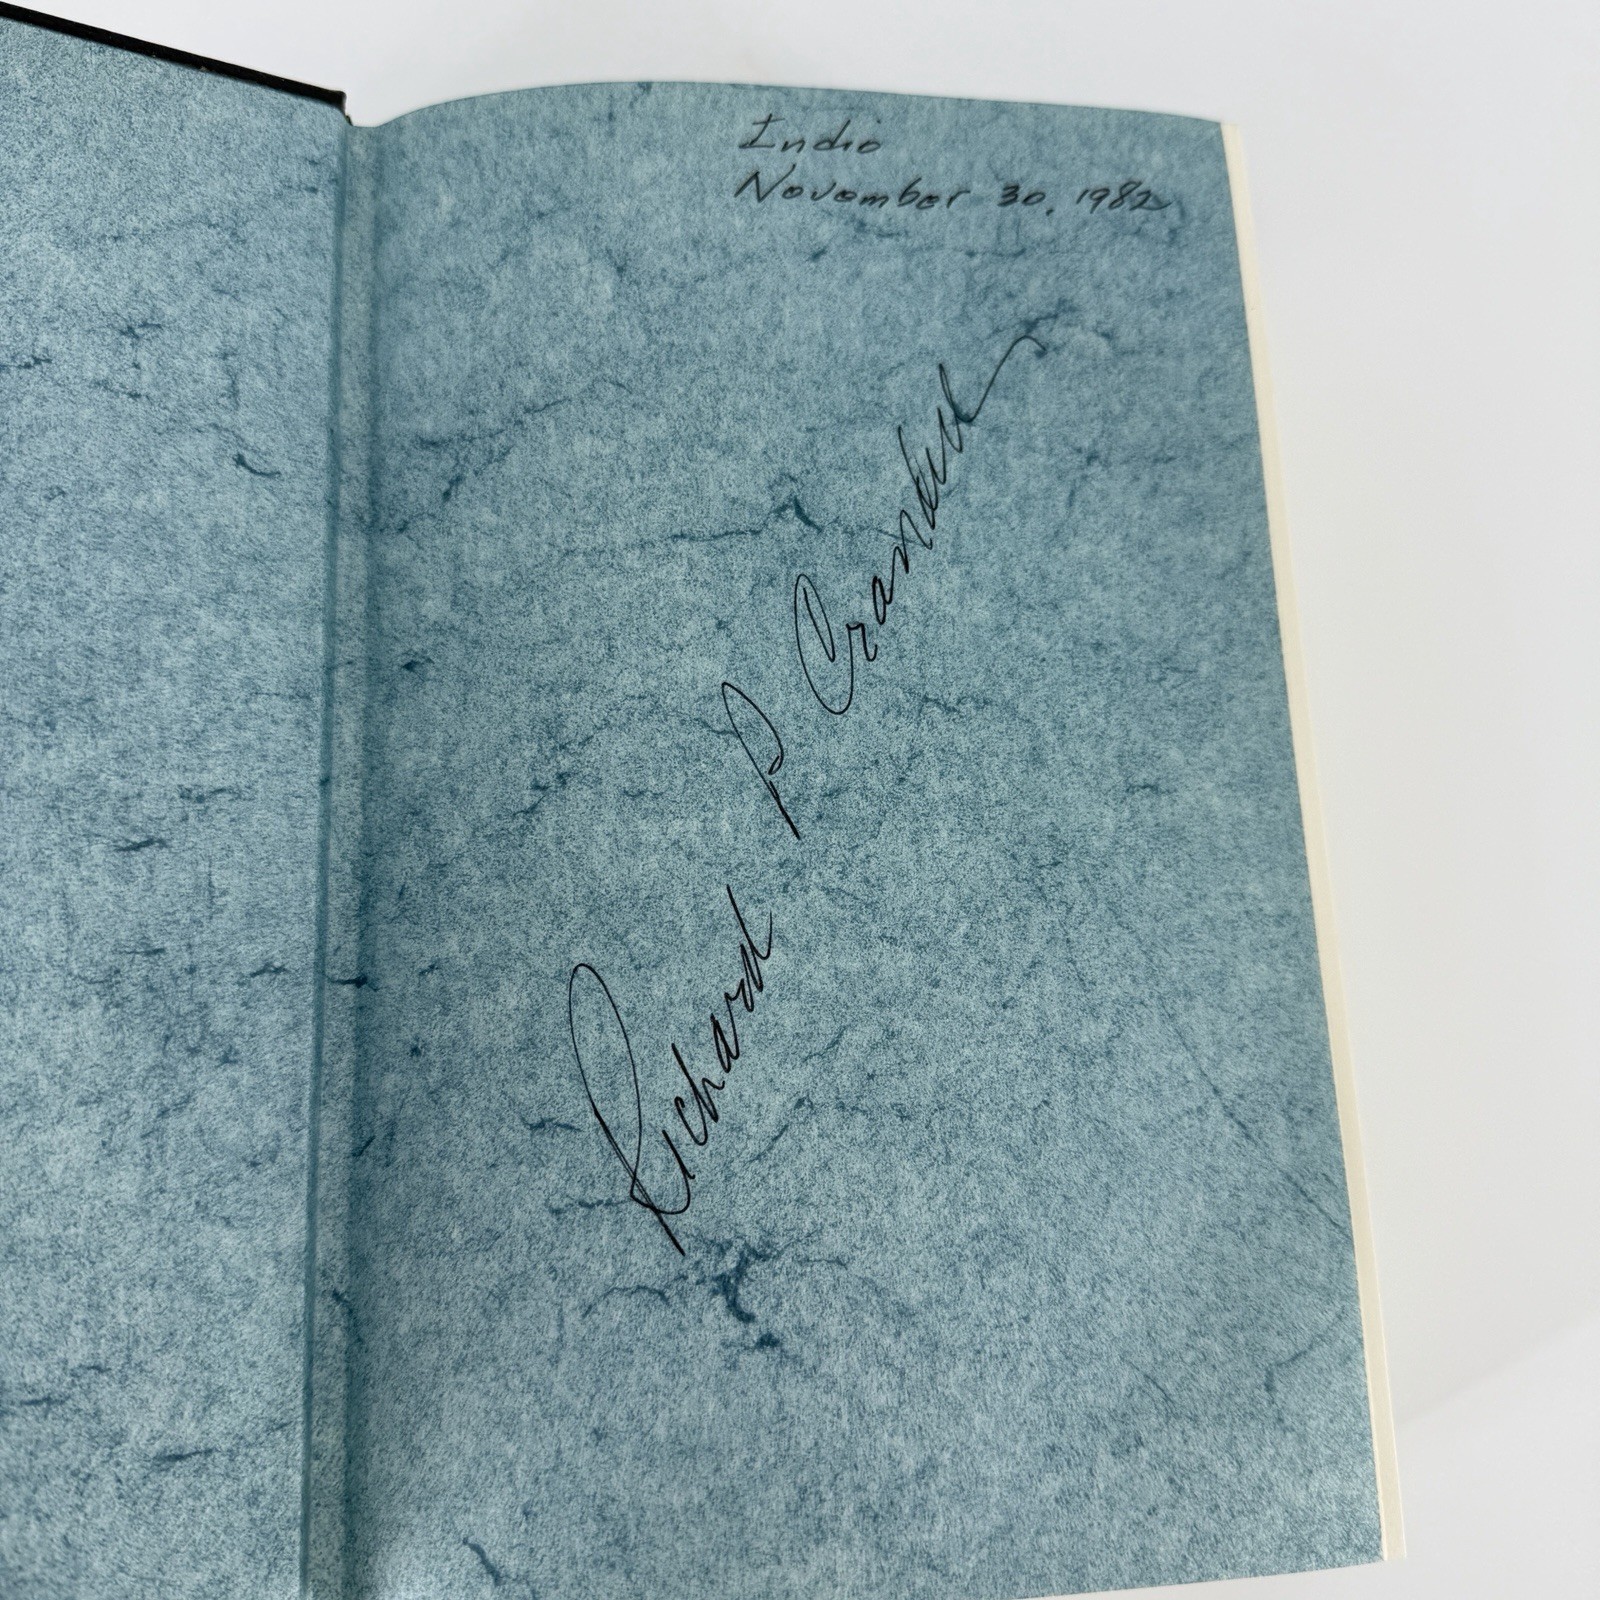 Indio
November 30, 1982
Richard P Crandall